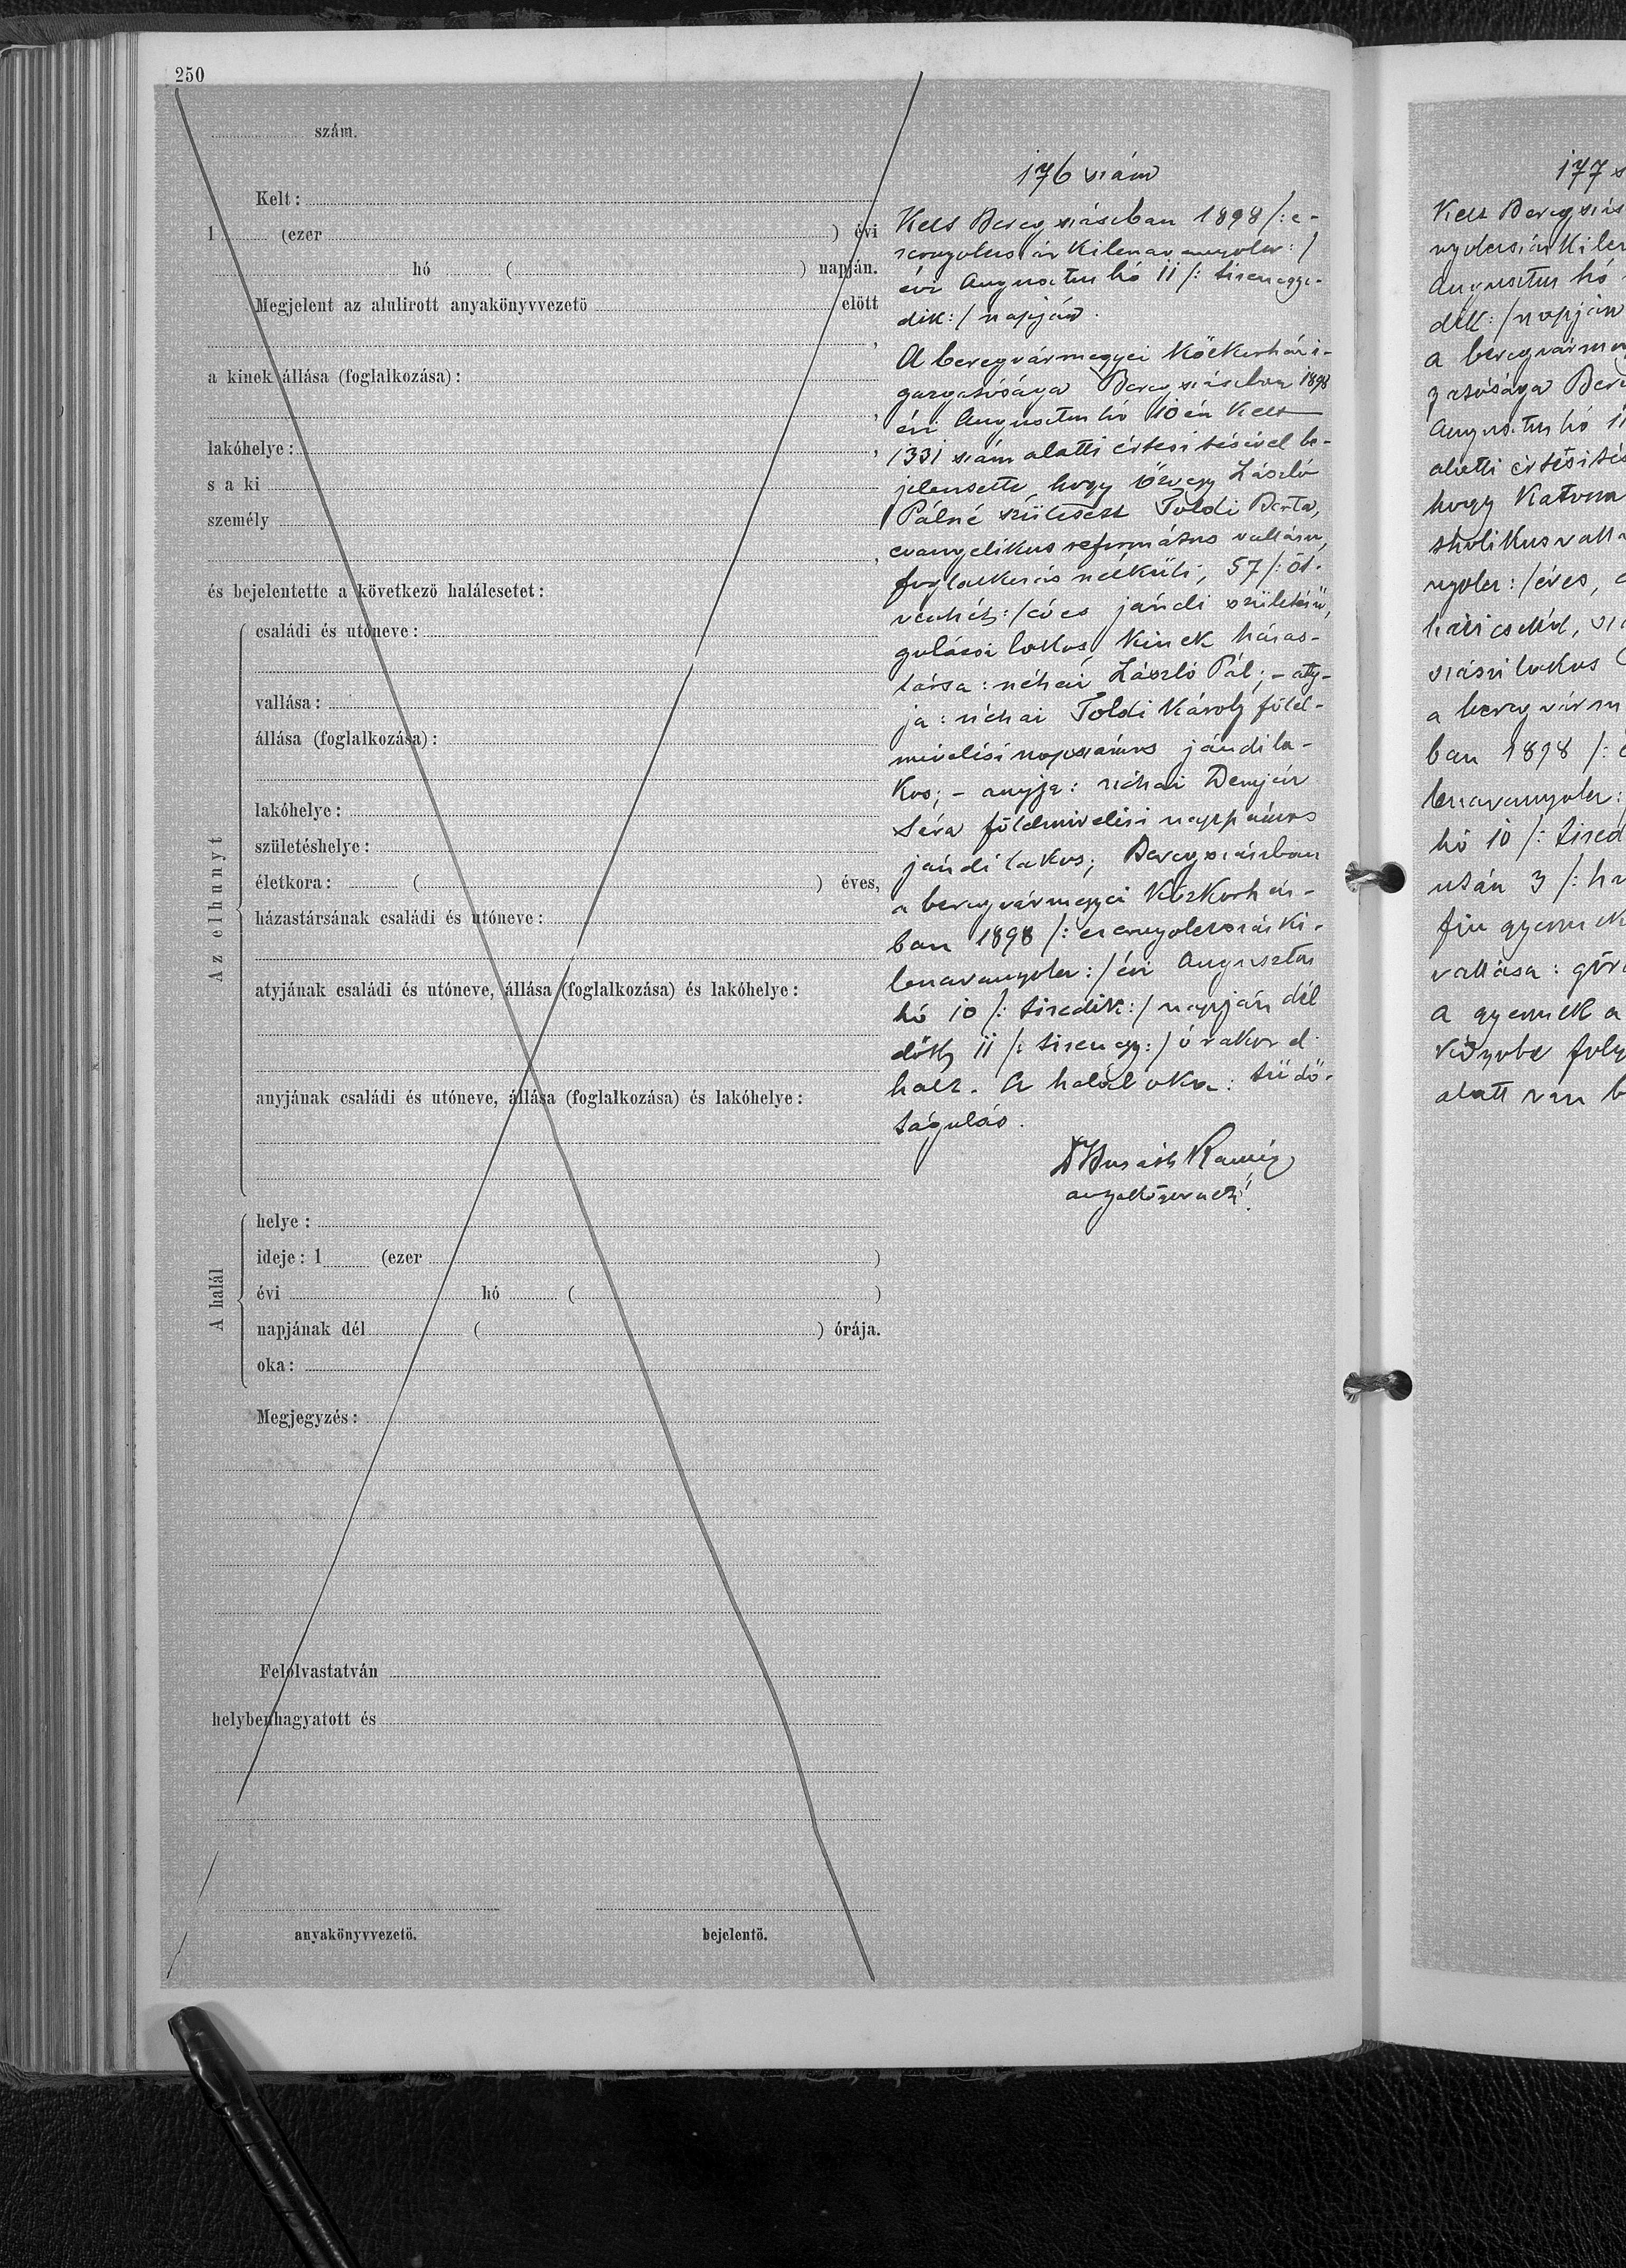 250
szám.
Kelt:
1 (ezer ) évi
hó ( ) napján.
Megjelent az alulirott anyakönyvvezetö előtt
,
a kinek állása (foglalkozása):
,
lakóhelye: ,
s a ki
személy
,
és bejelentette a következö halálesetet:
Az elhunyt
családi és utóneve:
vallása:
állása (foglalkozása):
lakóhelye:
születéshelye:
életkora: ( ) éves,
házastársának családi és utóneve:
atyjának családi és utóneve, állása (foglalkozása) és lakóhelye:
anyjának családi és utóneve, állása (foglalkozása) és lakóhelye:
A halál
helye:
ideje: 1 (ezer )
évi hó ( )
napjának dél ( ) órája.
oka:
Megjegyzés:
Felolvastatván
helybenhagyatott és
anyakönyvvezetö.
bejelentö.
176 szám
Kelt Beregszászban 1898 /: e-
zernyolcszáz kilencvennyolcz :/
évi Augusztus hó 11 /: tizenegye-
dik :/ napján.
A beregvármegyei közkorház i-
gazgatósága Beregszászban 1898
évi Augusztus hó 10 én kelt
1331 szám alatti értesitésével be-
jelentette, hogy özvegy László
Pálné született Toldi Berta,
evangelikus református vallásu,
foglalkozás nélküli, 57 /: öt-
venhét :/ éves jándi születésü,
gulácsi lakos, kinek házas-
társa: néhai László Pál; - aty-
ja: néhai Toldi Károly föld-
mivelési napszámos jándi la-
kos; - anyja: néhai Demjén
Sára földmivelési napszámos
jándi lakos; Beregszászban
a beregvármegyei közkorház-
ban 1898 /: ezernyolcszáz ki-
lencvennyolcz :/ évi Augusztus
hó 10 /: tizedik :/ napján dél
előtt 11 /: tizenegy :/ órakor el-
halt. A halál oka: tüdö-
tágulás.
177
Kelt Beregszás
Augusztus hó
dik :/ napján
a beregvárme
Augusztus hó 11
alatti értesités
hogy Katona
/ éves,
szászi lakos
a beregvárm
ban 1898 /: e
lencvennyolcz:
hó 10 /: tized
után 3 /: há
fiu gyermek
vallása: görö
a gyermek a
alatt van b